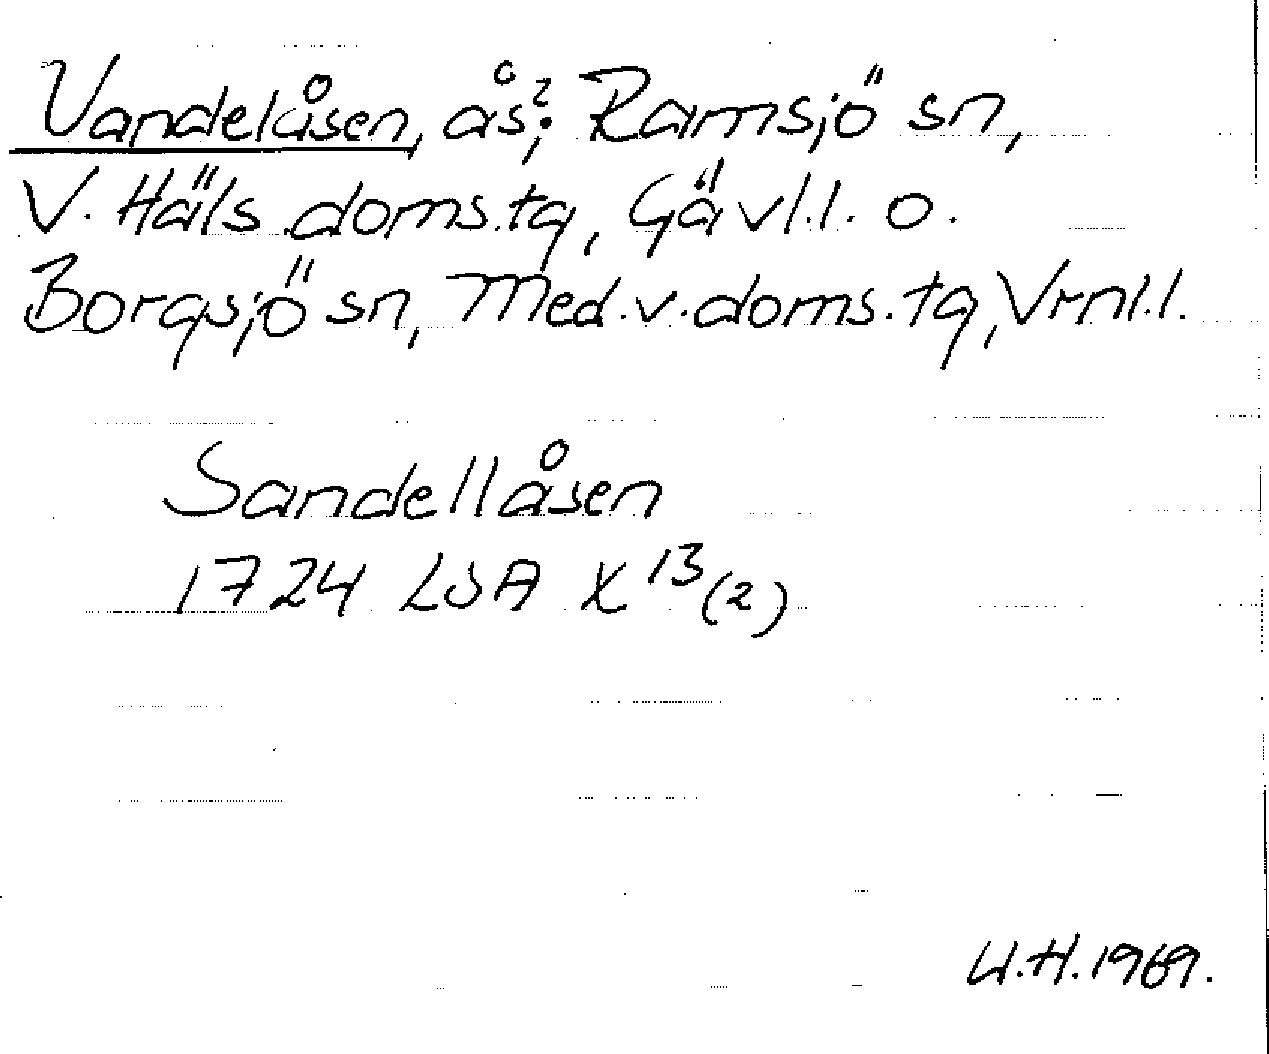 Vandelåsen, ås?; Ramsjö sn,
V. Häls. doms.tg, Gävl.l. o.
Borgsjö sn, Med.v.doms.tg, Vrnl.l.
Sandellåsen
1724 LSA X 13(2)
U.H.1969.